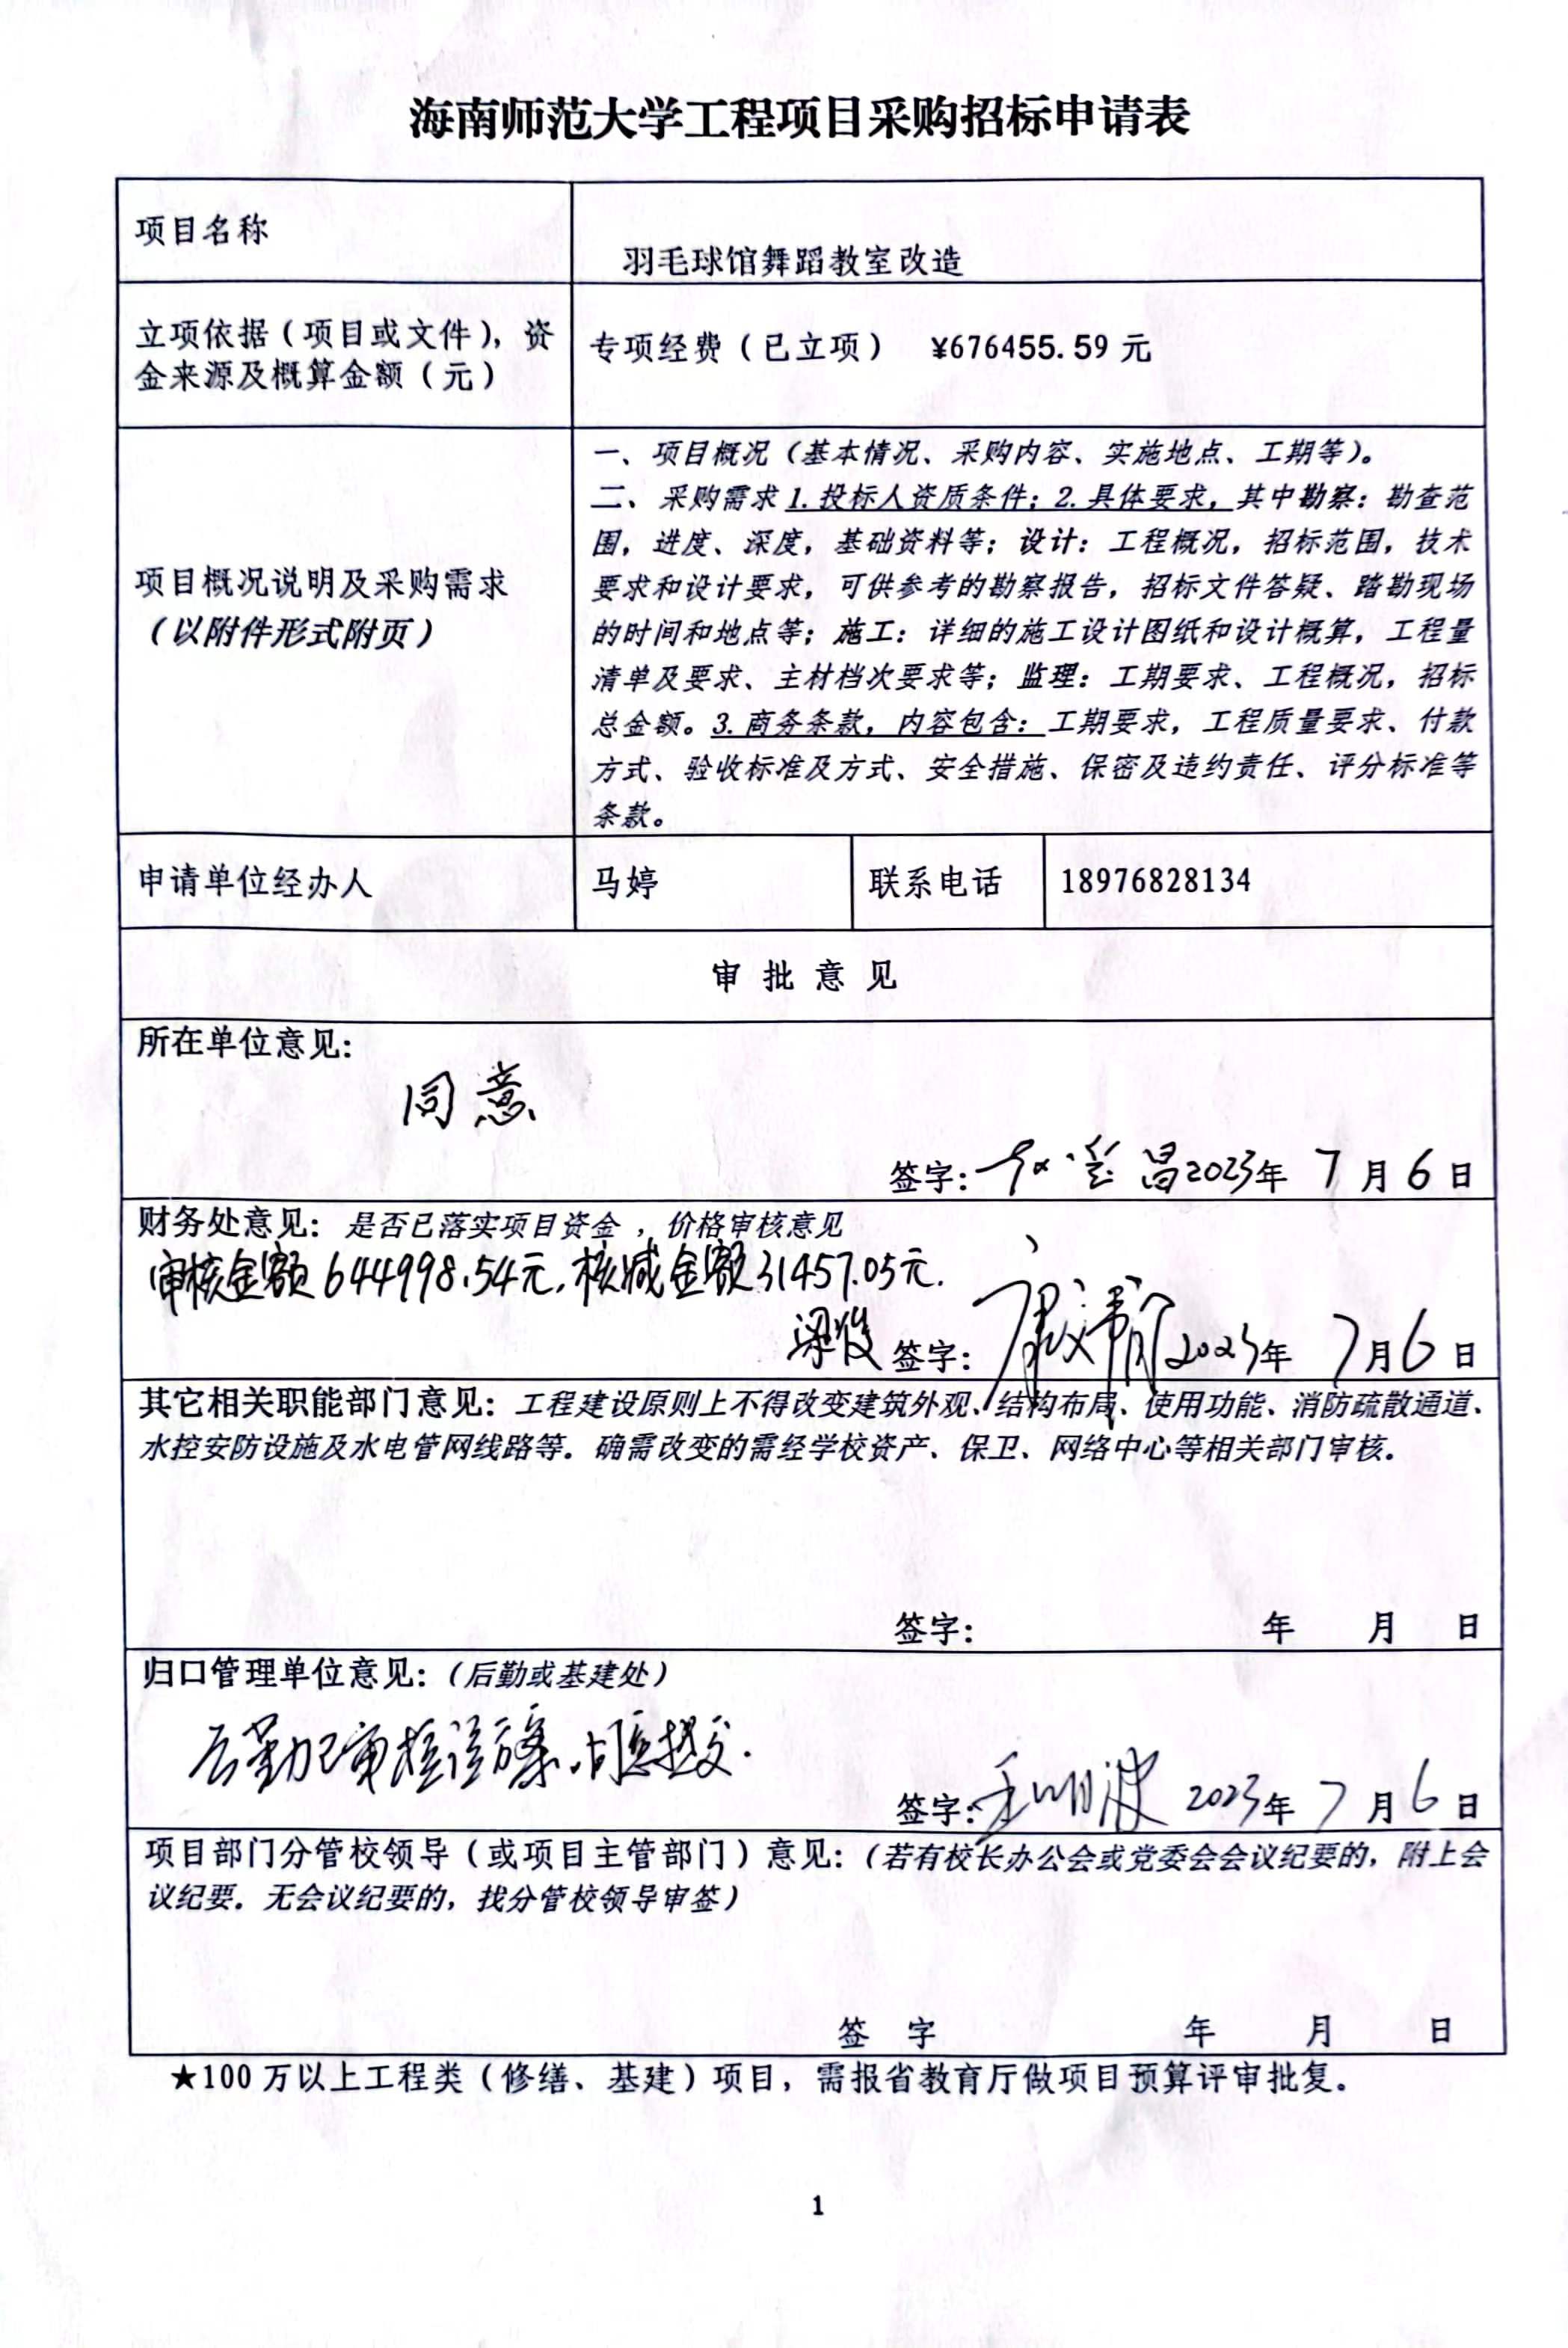 海南师范大学工程项目采购招标申请表
项目名称
羽毛球馆舞蹈教室改造
立项依据（项目或文件），资
金来源及概算金额（元）
专项经费（已立项） ¥676455.59 元
项目概况说明及采购需求
（以附件形式附页）
一、项目概况（基本情况、采购内容、实施地点、工期等）。
二、采购需求 1.投标人资质条件；2.具体要求，其中勘察：勘查范
围，进度、深度，基础资料等；设计：工程概况，招标范围，技术
要求和设计要求，可供参考的勘察报告，招标文件答疑、踏勘现场
的时间和地点等；施工：详细的施工设计图纸和设计概算，工程量
清单及要求、主材档次要求等；监理：工期要求、工程概况，招标
总金额。3.商务条款，内容包含：工期要求，工程质量要求、付款
方式、验收标准及方式、安全措施、保密及违约责任、评分标准等
条款。
申请单位经办人
马婷
联系电话
18976828134
审 批 意 见
所在单位意见：
同意
签字： 2023年 7月 6日
财务处意见：是否已落实项目资金，价格审核意见
审核金额644998.54元，核减金额31457.05元.
梁俊 签字： 2023年 7月6日
其它相关职能部门意见：工程建设原则上不得改变建筑外观、结构布局、使用功能、消防疏散通道、
水控安防设施及水电管网线路等。确需改变的需经学校资产、保卫、网络中心等相关部门审核。
签字： 年 月 日
归口管理单位意见：（后勤或基建处）
后勤已审核该方案，同意提交.
签字：王明波 2023年 7月6日
项目部门分管校领导（或项目主管部门）意见：（若有校长办公会或党委会会议纪要的，附上会
议纪要。无会议纪要的，找分管校领导审签）
签 字 年 月 日
★100 万以上工程类（修缮、基建）项目，需报省教育厅做项目预算评审批复。
1